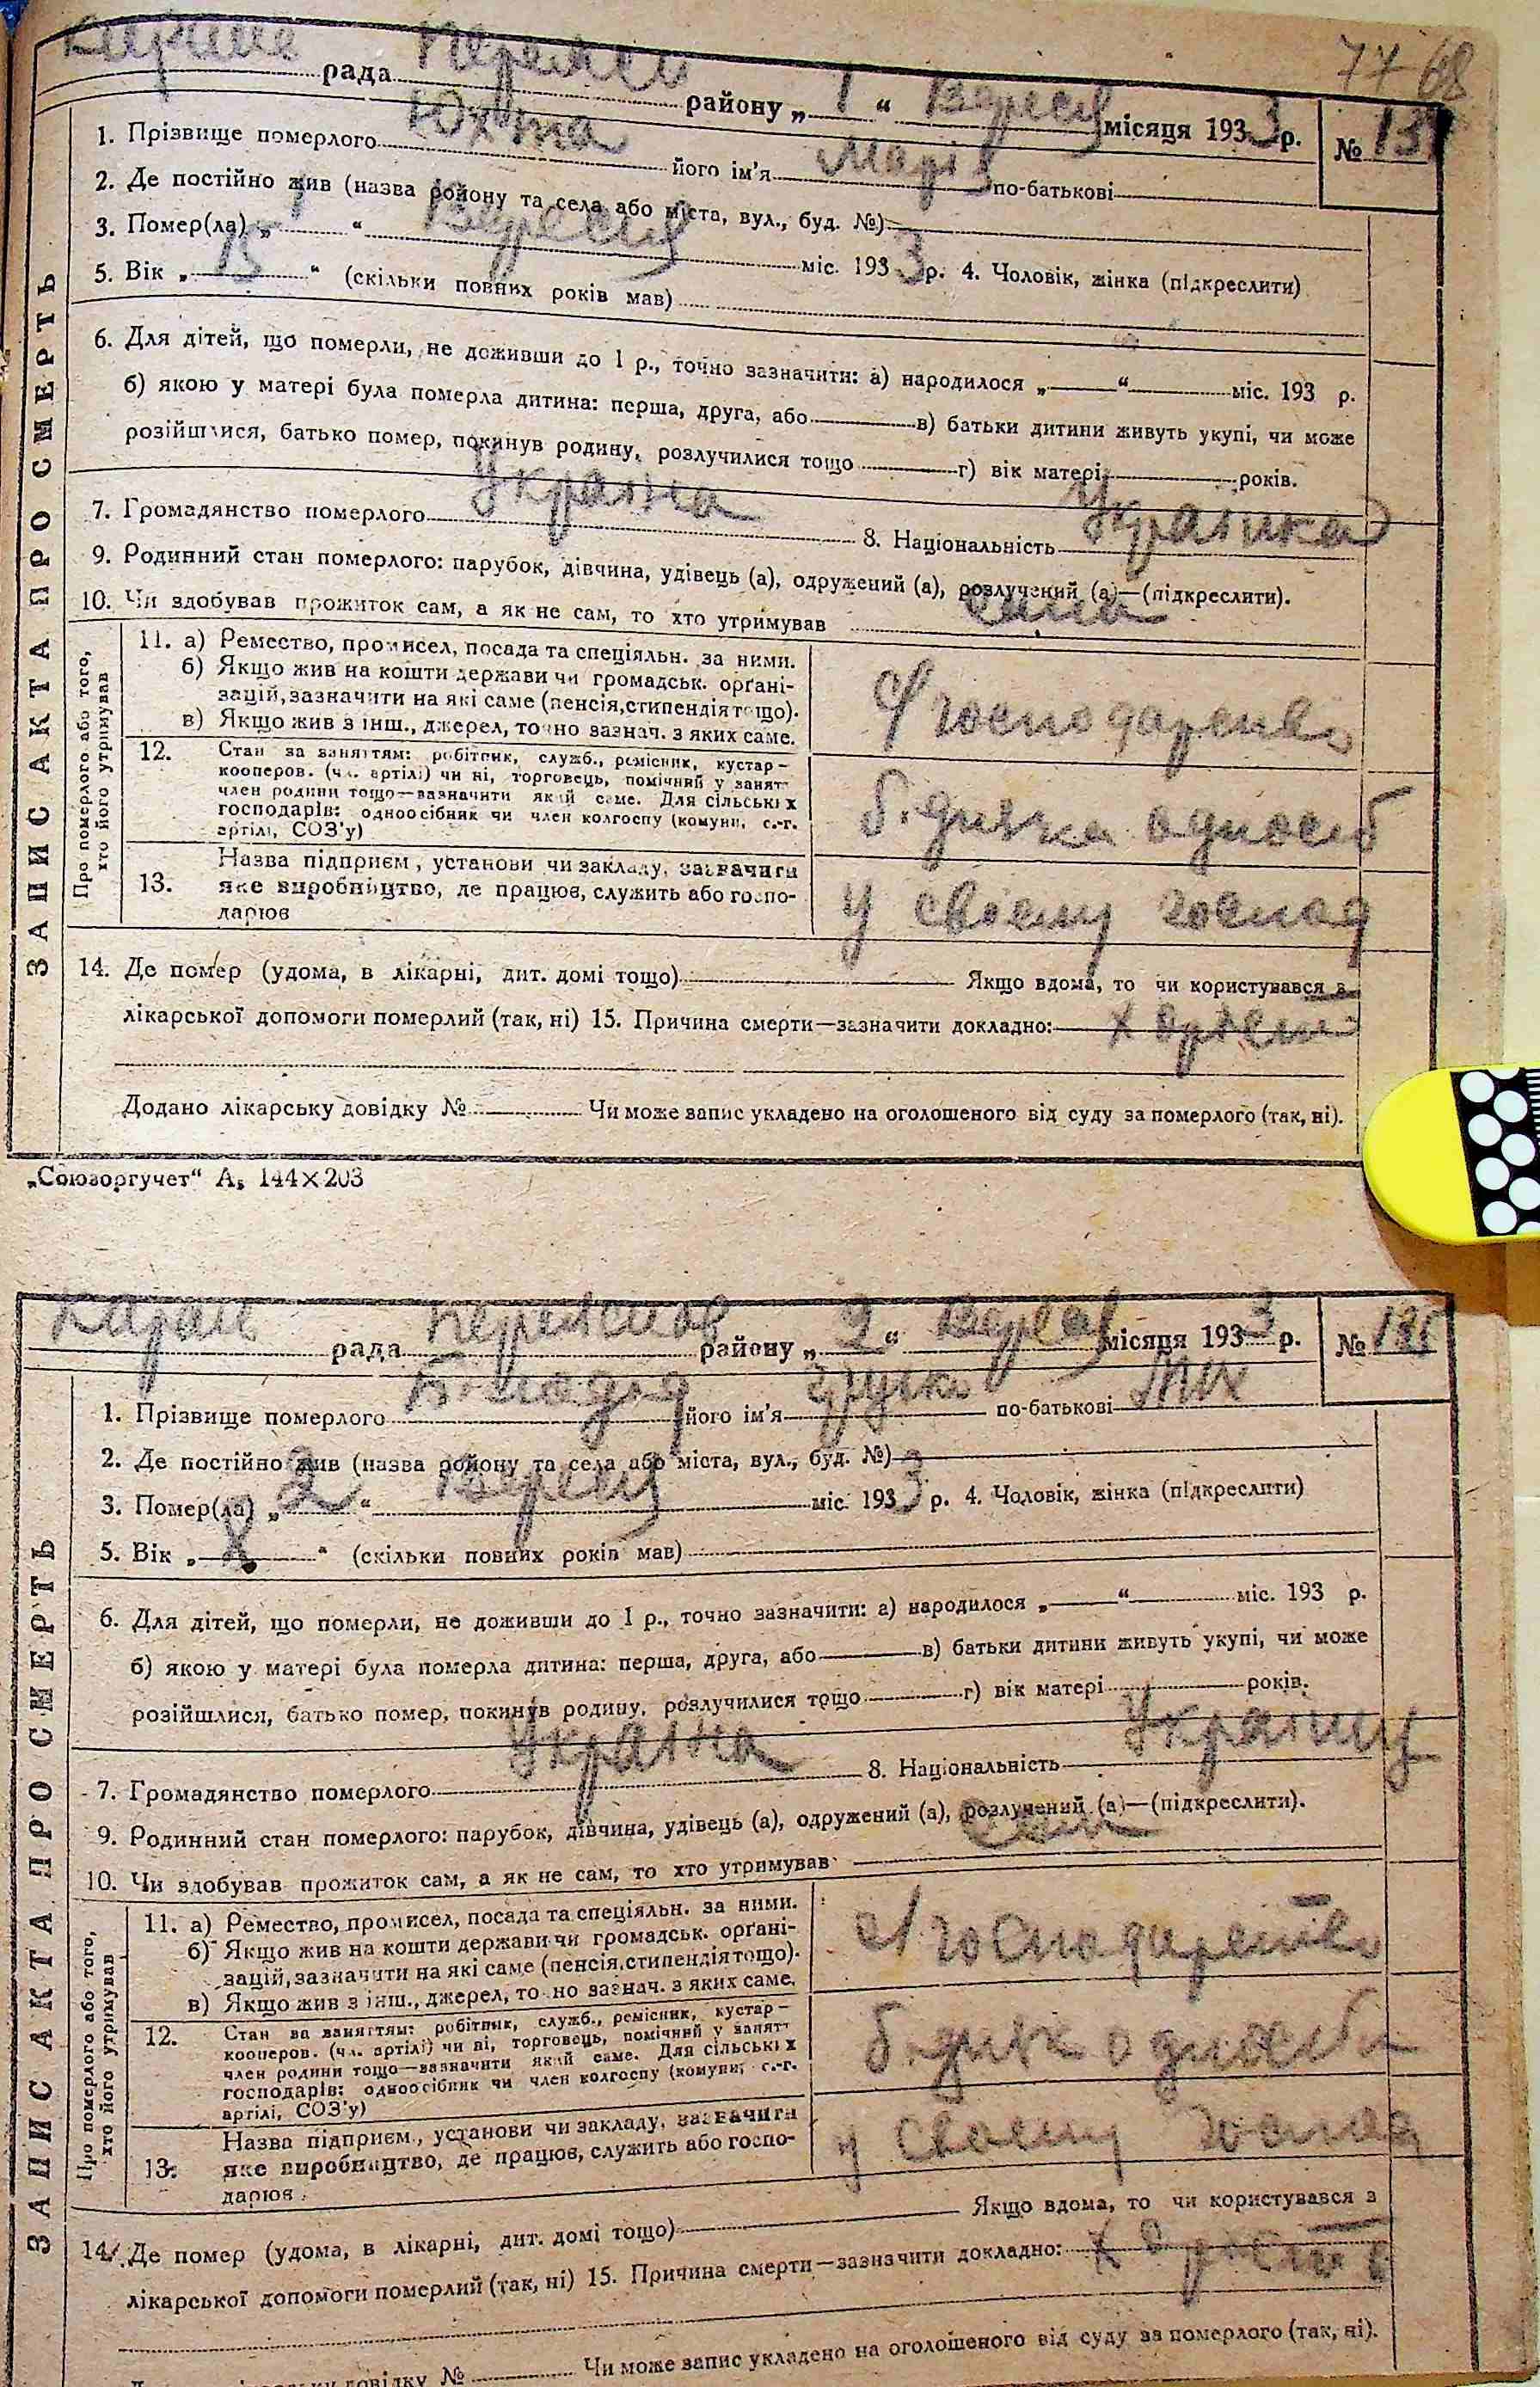 77 68
рада Переясл району „ 1 “ Вересня місяця 1933 р. № 13
1. Прізвище померлого Юхта його ім'я Марія по-батькові
2. Де постійно жив (назва району та села або міста, вул., буд. №)
3. Помер(ла) „ 1 “ Вересня міс. 1933 р. 4. Чоловік, жінка (підкреслити)
5. Вік „ 15 “ (скільки повних років мав)
6. Для дітей, що померли, не доживши до 1 р., точно зазначити: а) народилося „ “ міс. 193 р.
б) якою у матері була померла дитина: перша, друга, або в) батьки дитини живуть укупі, чи може
розійшлися, батько помер, покинув родину, розлучилися тощо г) вік матері років.
7. Громадянство померлого Україна 8. Національність Українка
9. Родинний стан померлого: парубок, дівчина, удівець (а), одружений (а), розлучений (а)—(підкреслити).
10. Чи здобував прожиток сам, а як не сам, то хто утримував сама
ЗАПИС АКТА ПРО СМЕРТЬ
Про померлого або того, хто його утримував
11. а) Ремество, промисел, посада та спеціяльн. за ними.
б) Якщо жив на кошти держави чи громадськ. орґані-
зацій, зазначити на які саме (пенсія, стипендія тощо).
в) Якщо жив з інш., джерел, точно зазнач. з яких саме.
с/господарство
12. Стан за заняттям: робітник, служб., ремісник, кустар—
кооперов. (чл. артілі) чи ні, торговець, помічний у занят-
член родини тощо—зазначити який саме. Для сільських
господарів: одноосібник чи член колгоспу (комуни, с.-г.
артілі, СОЗ'у)
б.днячка одноосіб
13. Назва підприєм., установи чи закладу, зазначити
яке виробництво, де працює, служить або госпо-
дарює
у своєму господ
14. Де помер (удома, в лікарні, дит. домі тощо) Якщо вдома, то чи користувався з
лікарської допомоги померлий (так, ні) 15. Причина смерти—зазначити докладно:
Додано лікарську довідку № Чи може запис укладено на оголошеного від суду за померлого (так, ні).
„Союзоргучет“ А₅ 144×203
рада Переяслов району „ 2 “ Вересня місяця 1933 р. № 135
1. Прізвище померлого його ім'я по-батькові Мих
2. Де постійно жив (назва району та села або міста, вул., буд. №)
3. Помер(ла) „ 2 “ Вересня міс. 1933 р. 4. Чоловік, жінка (підкреслити)
5. Вік „ “ (скільки повних років мав)
6. Для дітей, що померли, не доживши до 1 р., точно зазначити: а) народилося „ “ міс. 193 р.
б) якою у матері була померла дитина: перша, друга, або в) батьки дитини живуть укупі, чи може
розійшлися, батько помер, покинув родину, розлучилися тощо г) вік матері років.
7. Громадянство померлого Україна 8. Національність Українц
9. Родинний стан померлого: парубок, дівчина, удівець (а), одружений (а), розлучений (а)—(підкреслити).
10. Чи здобував прожиток сам, а як не сам, то хто утримував сам
ЗАПИС АКТА ПРО СМЕРТЬ
Про померлого або того, хто його утримував
11. а) Ремество, промисел, посада та спеціяльн. за ними.
б) Якщо жив на кошти держави чи громадськ. орґані-
зацій, зазначити на які саме (пенсія, стипендія тощо).
в) Якщо жив з інш., джерел, точно зазнач. з яких саме.
с/господарство
12. Стан за заняттям: робітник, служб., ремісник, кустар—
кооперов. (чл. артілі) чи ні, торговець, помічний у занят-
член родини тощо—зазначити який саме. Для сільських
господарів: одноосібник чи член колгоспу (комуни, с.-г.
артілі, СОЗ'у)
б.дняк одноосіб
13. Назва підприєм., установи чи закладу, зазначити
яке виробництво, де працює, служить або госпо-
дарює
у своєму господ
14. Де помер (удома, в лікарні, дит. домі тощо) Якщо вдома, то чи користувався з
лікарської допомоги померлий (так, ні) 15. Причина смерти—зазначити докладно:
довідку № Чи може запис укладено на оголошеного від суду за померлого (так, ні).